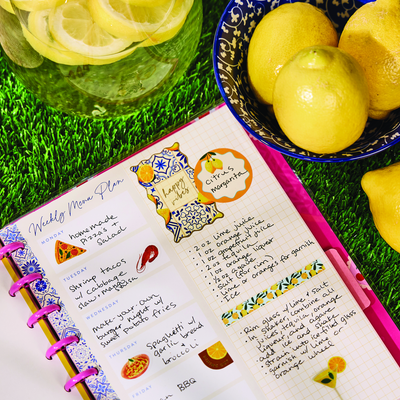 Weekly Menu Plan
MONDAY
homemade
pizzas
salad
TUESDAY
Shrimp tacos
w/ cabbage
slaw + mayofish
WEDNESDAY
make your own
burger night w/
sweet potato fries
THURSDAY
Spaghetti w/
garlic bread
broccoli
FRIDAY
BBQ
happy
vibes
Citrus
margarita
2 oz lime juice
1 oz orange juice
1 oz grapefruit juice
2 oz tequila
1 oz orange liquor
1/2 oz agave
salt (for rim)
lime or oranges for garnish
Ice
• Rim glass w/ lime & salt
• In shaker, combine
juices tequila, orange
liquor and agave
• add ice and shake
• strain into ice-filled glass
• garnish w/ lime or
orange wheel